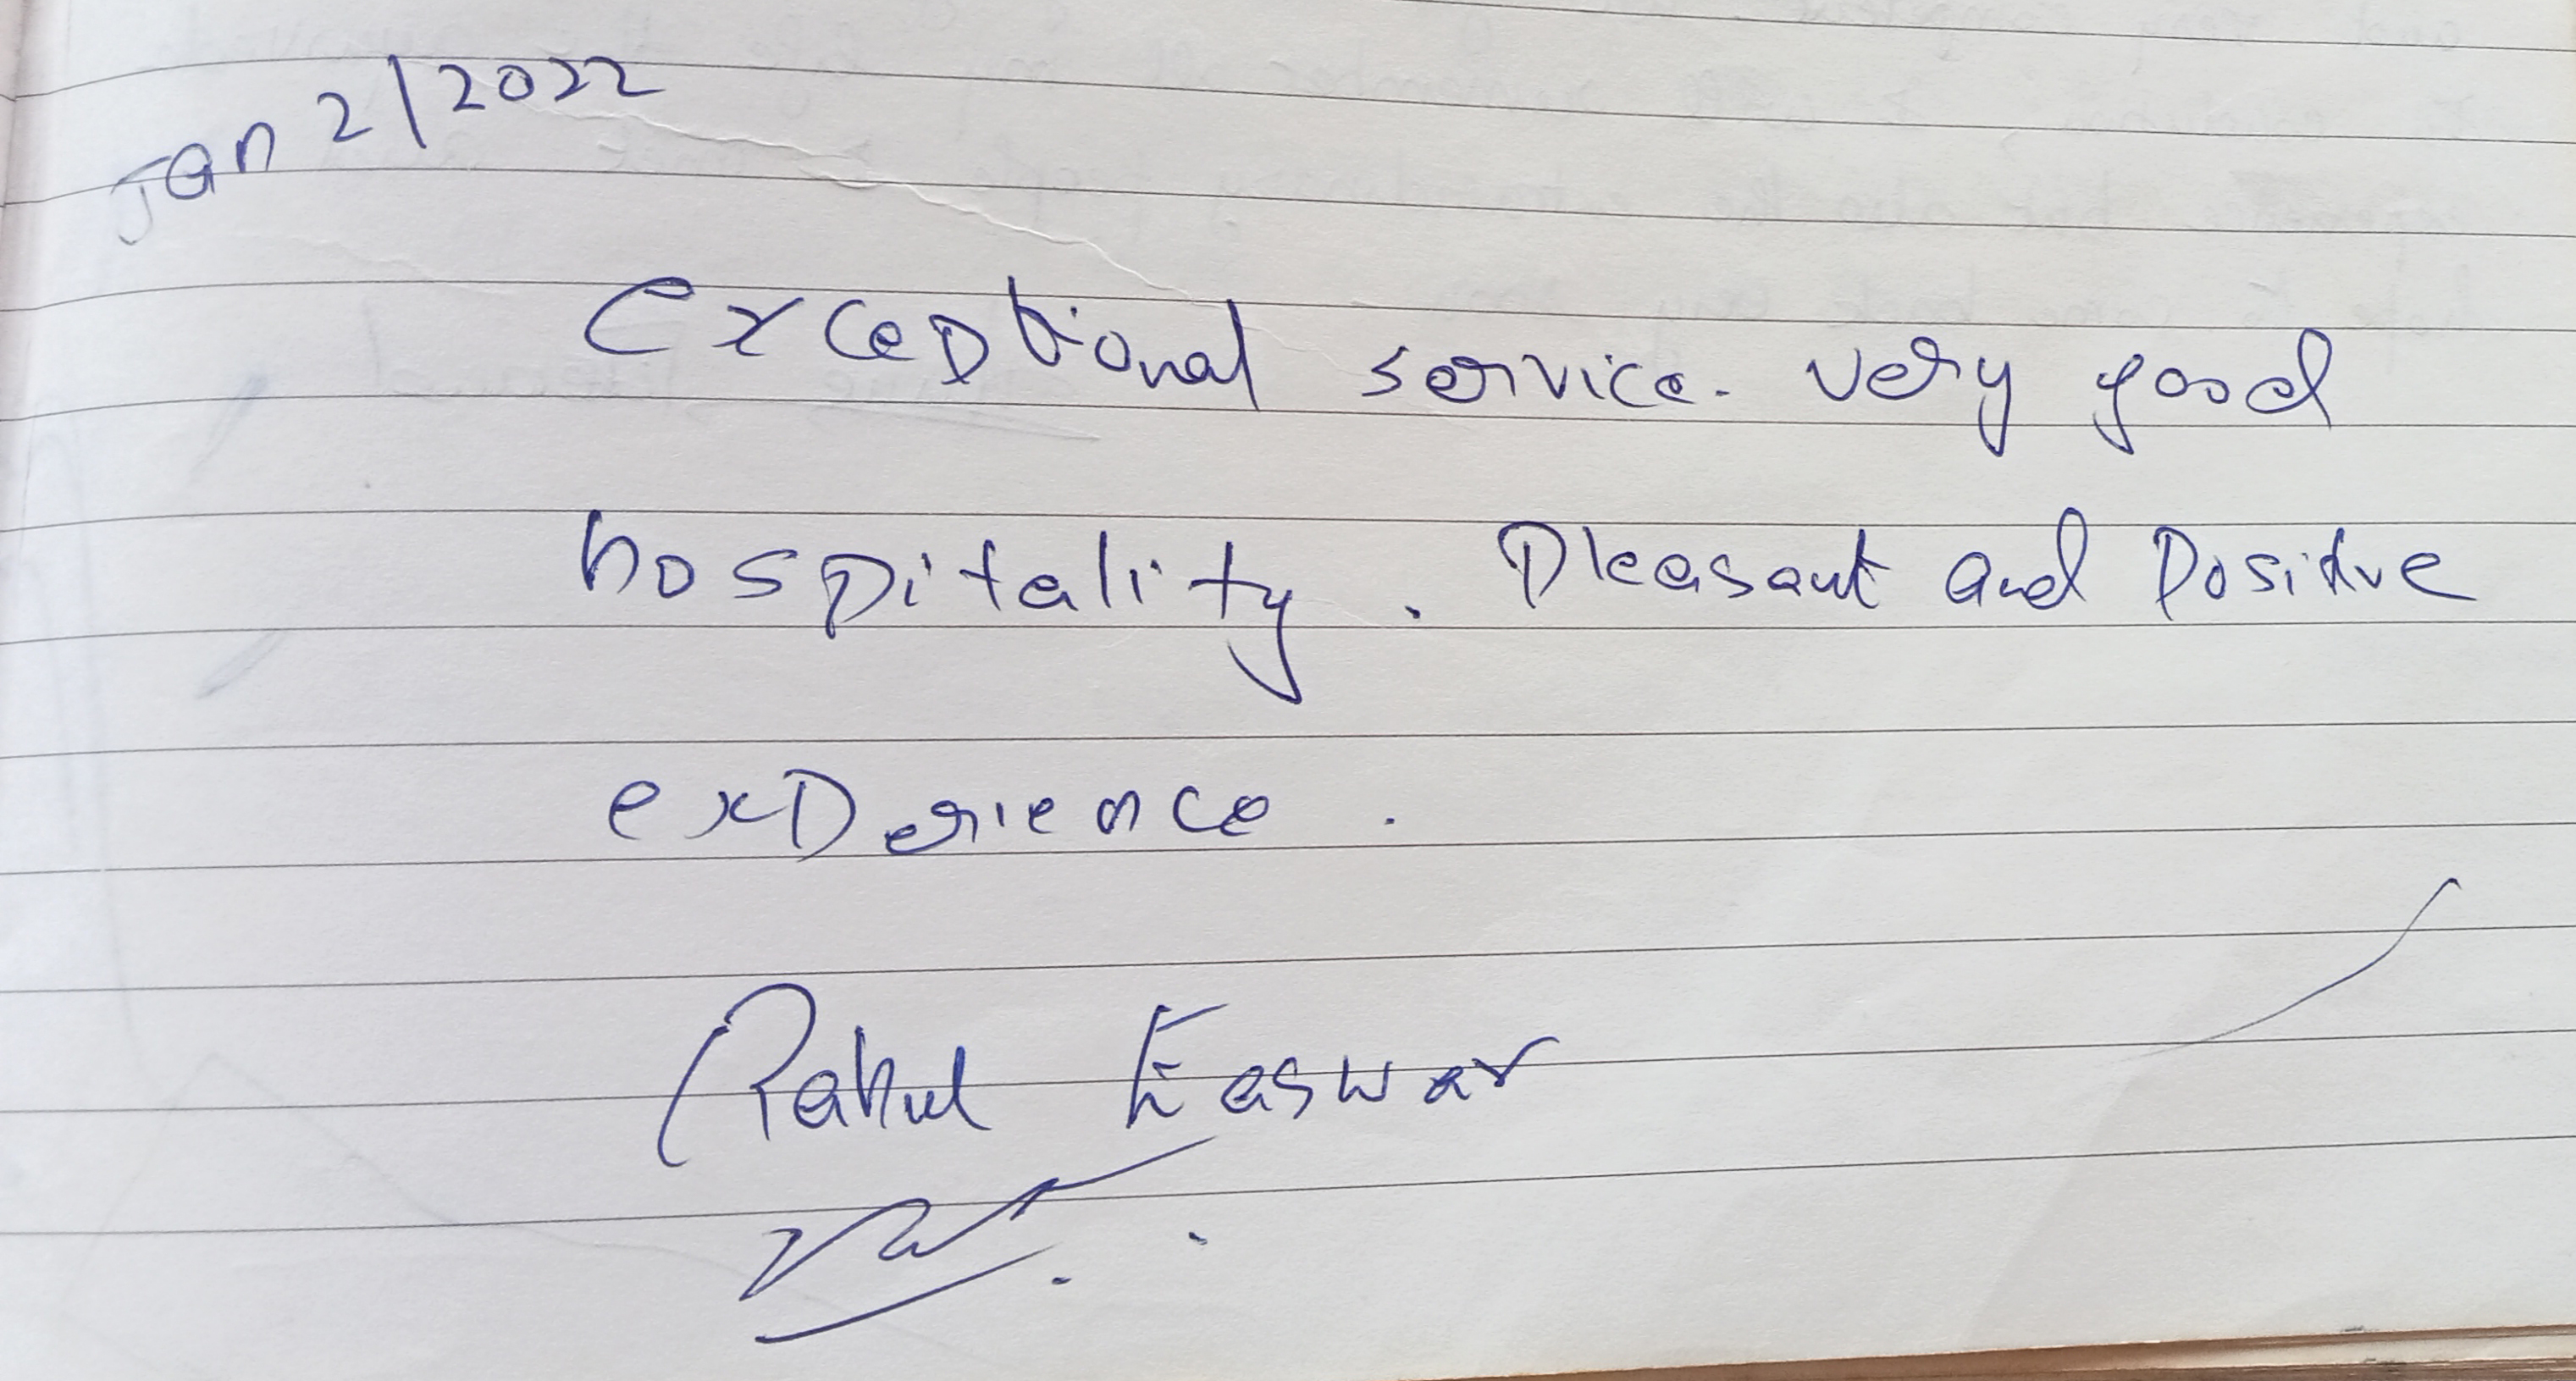 Jan 2/2022
Exceptional service. Very good
hospitality. Pleasant and Positive
experience.
Rahul Easwar